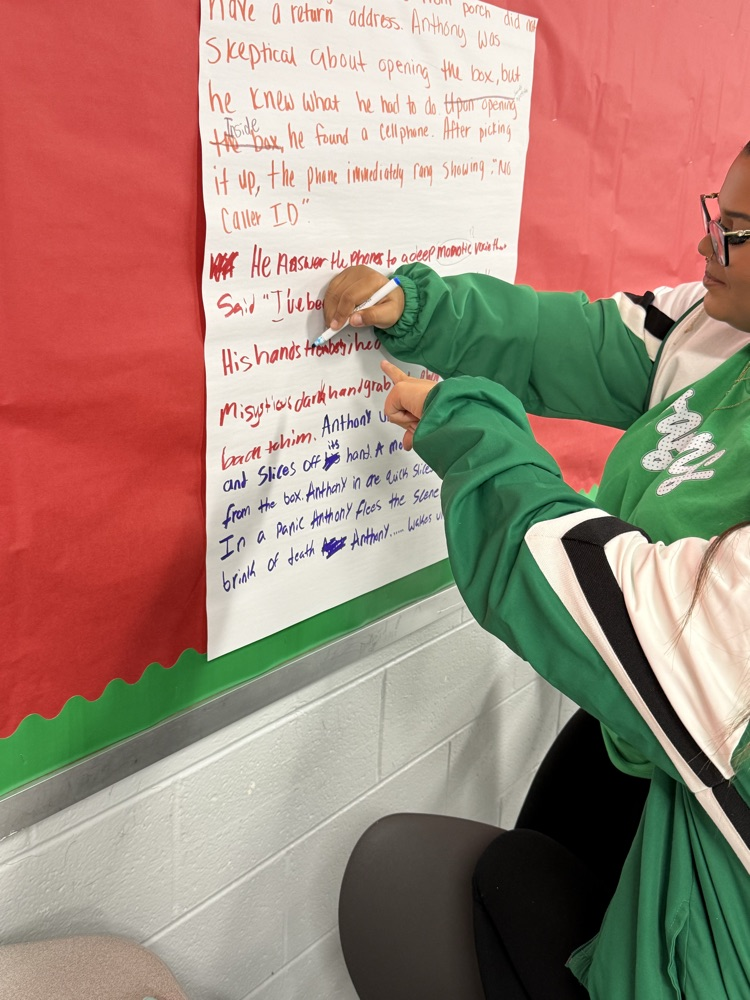 have a return address. Anthony was
porch did not
skeptical about opening the box, but
he knew what he had to do Upon opening
Inside
the box, he found a cellphone. After picking
it up, the phone immediately rang showing: "No
Caller ID".
He Answer the phones to a deep monotic voice that
Said "I've be
His hands trembely, he
Misystious dark hand grab
back to him. Anthony
and Slices off its hand. A mo
from the box. Anthony in one quick slice
In a panic Anthony flees the scene
brink of death Anthony..... wakes u